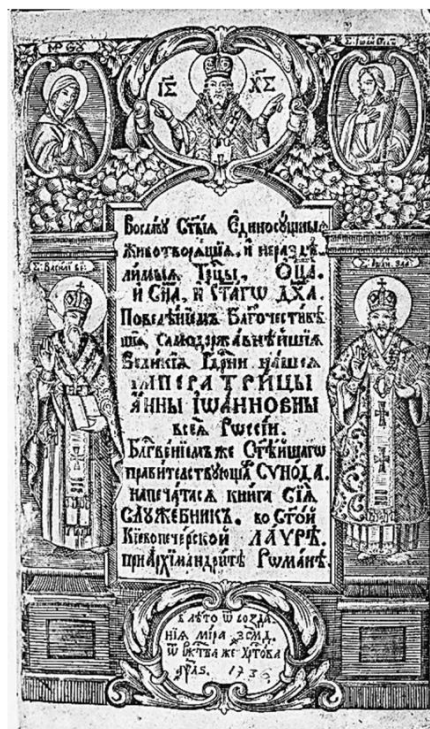 ІС ХС
Восла́ву Ст҃ы́я Єдиносꙋ́щныя
Животворѧ́щїѧ, и҆ неразд̾ѣ-
ли́мыя Трⷪ҇цы, Ѻц҃а̀.
И҆ Сн҃а, и҆ Ст҃а́гѡ Дх҃а.
Повелѣ́нїемъ Благочести́вѣ
шїѧ, Самодержа́внѣйшїѧ
Вели́кїѧ Гдⷭ҇рни на́шеѧ
ИМПЕРАТРИЦЫ
А҆́ННЫ ІѠА́ННОВНЫ
всеѧ̀ Рѡссі́и.
Блгⷭ҇ве́нїемже Ст҃ѣ́йшагѡ
пра́вителствꙋющаⷢ҇ СѴНО́ДА.
напеча́тасѧ кни́га СІ́Ѧ
СЛꙊЖЕ́БНИКЪ. во Ст҃о́й
Кїевопече́рской ЛА́ѴРѢ.
при А҆рхїмандрі́тѣ Рѡма́нѣ.
в лѣ́то ѿ созда́-
нїѧ мі́ра ҂зсмд҃.